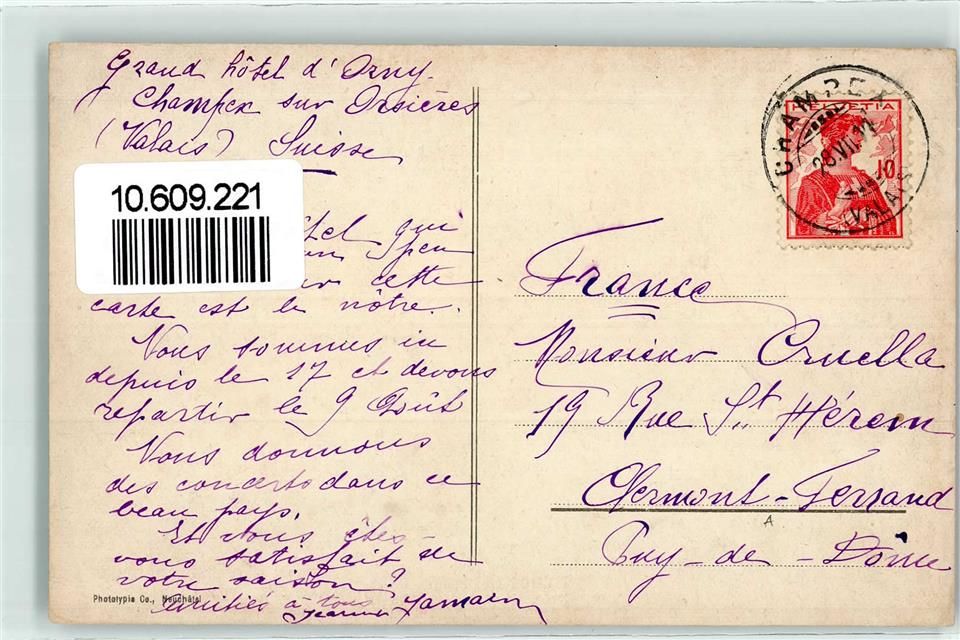 Grand hôtel d'Orny
Champex sur Orsières
(Valais) Suisse
10.609.221
qui
un peu
sur cette
carte est le nôtre.
Nous sommes ici
depuis le 17 et devons
repartir le 9 Août
Nous donnons
des concerts dans ce
beau pays.
Et vous êtes-
vous satisfait de
votre saison?
amitiés à tous
Jeanne Jamaen
Phototypie Co., Neuchâtel
CHAMPEX
HELVETIA
10
(VALAIS)
France
Monsieur Cruella
19 Rue St Hérem
Clermont-Ferrand
Puy-de-Dôme